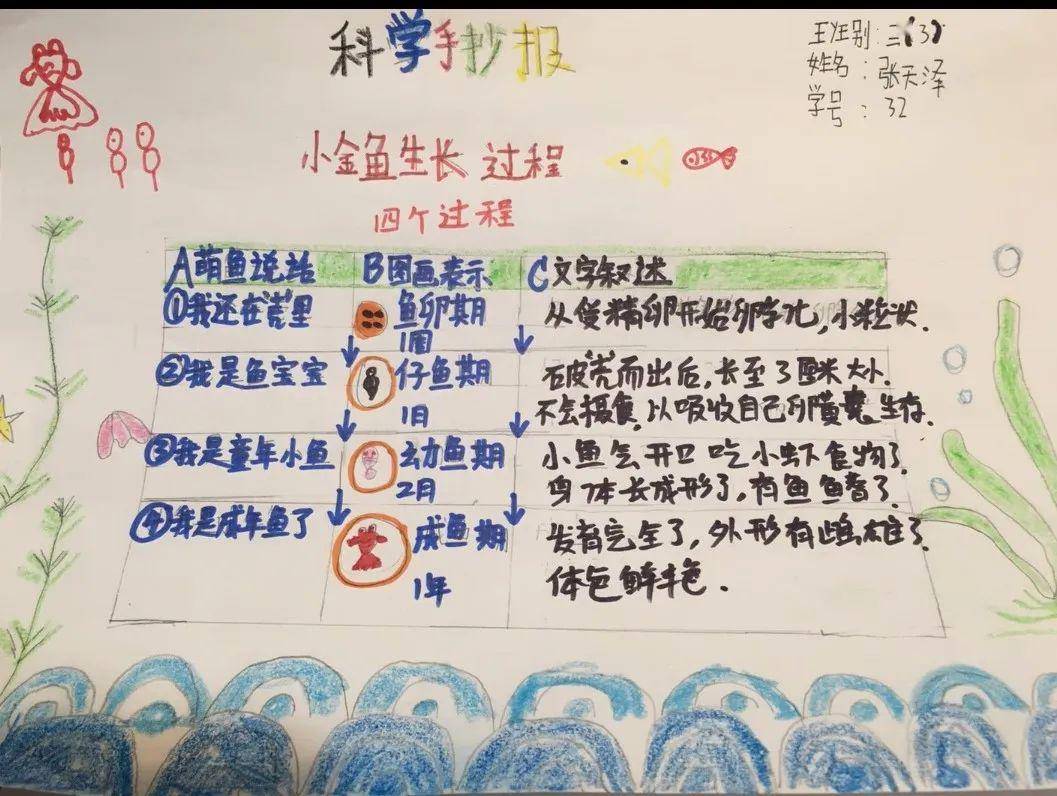 科学手抄报
班别:三(3)
姓名:张天泽
学号:32
小金鱼生长过程
四个过程
A萌鱼说话 B图画表示 C文字叙述
①我还在壳里 鱼卵期 从受精卵开始卵孵化,小粒状.
1周
②我是鱼宝宝 仔鱼期 破壳而出后,长至3厘米大小.
1日 不会摄食,以吸收自己卵黄囊生存.
③我是童年小鱼 幼鱼期 小鱼会开口吃小虾食物了.
2月 身体长成形了,有鱼鱼鳍了.
④我是成年鱼了 成鱼期 发育完全了,外形有雌雄了.
1年 体色鲜艳.